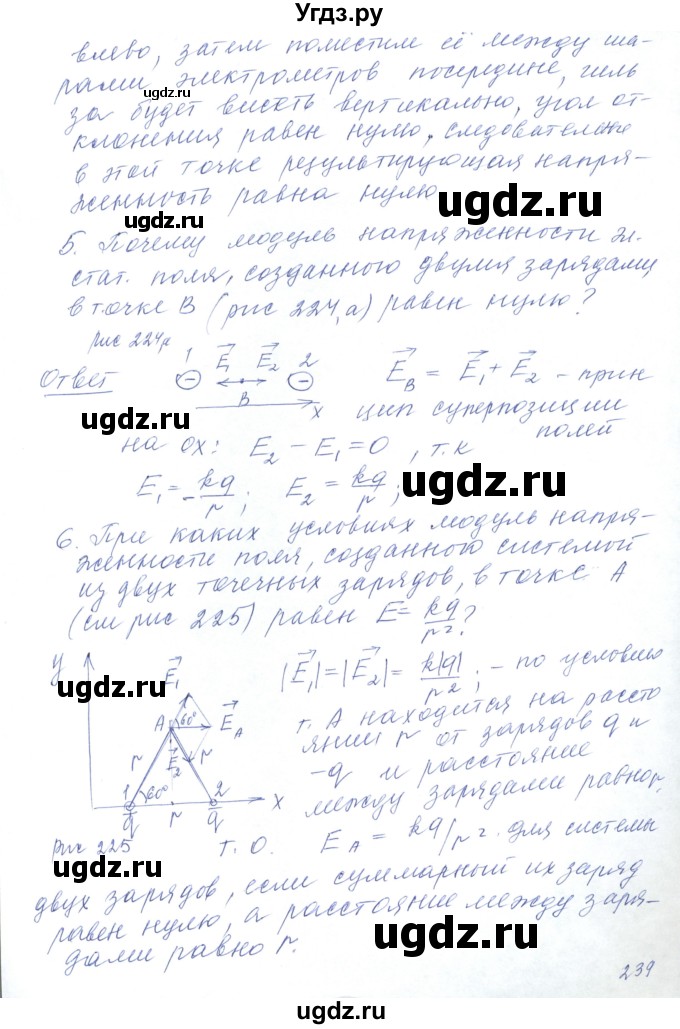 Угдз.ру
влево, затем поместим её между ша-
рами электрометров посередине, гиль
за будет висеть вертикально, угол от-
клонения равен нулю, следовательно
в этой точке результирующая напря-
женность равна нулю
5. Почему модуль напряженности эл.
стат. поля, созданного двумя зарядами,
в точке B (рис 224,а) равен нулю?
рис 224а
Ответ 1 E₁ E₂ 2
B x
E_B = E₁ + E₂ - прин
цип суперпозиции
полей
на ox: E₂ - E₁ = 0, т.к
E₁ = - kq/r; E₂ = kq/r;
6. При каких условиях модуль напря-
женности поля, созданного системой
из двух точечных зарядов, в точке A
(см рис 225) равен E = kq/r²?
y E₁ A 60° E_A E₂ r r
1 60° 2 x
q r q
рис 225
|E₁| = |E₂| = k|q|/r²; - по условию
т. A находится на рассто
янии r от зарядов q и
-q и расстояние
между зарядами равно r,
т. о. E_A = kq/r². для системы
двух зарядов, если суммарный их заряд
равен нулю, а расстояние между заря-
дами равно r.
239
ugdz.ru
ugdz.ru
ugdz.ru
ugdz.ru
ugdz.ru
ugdz.ru
ugdz.ru
ugdz.ru
ugdz.ru
ugdz.ru
ugdz.ru
ugdz.ru